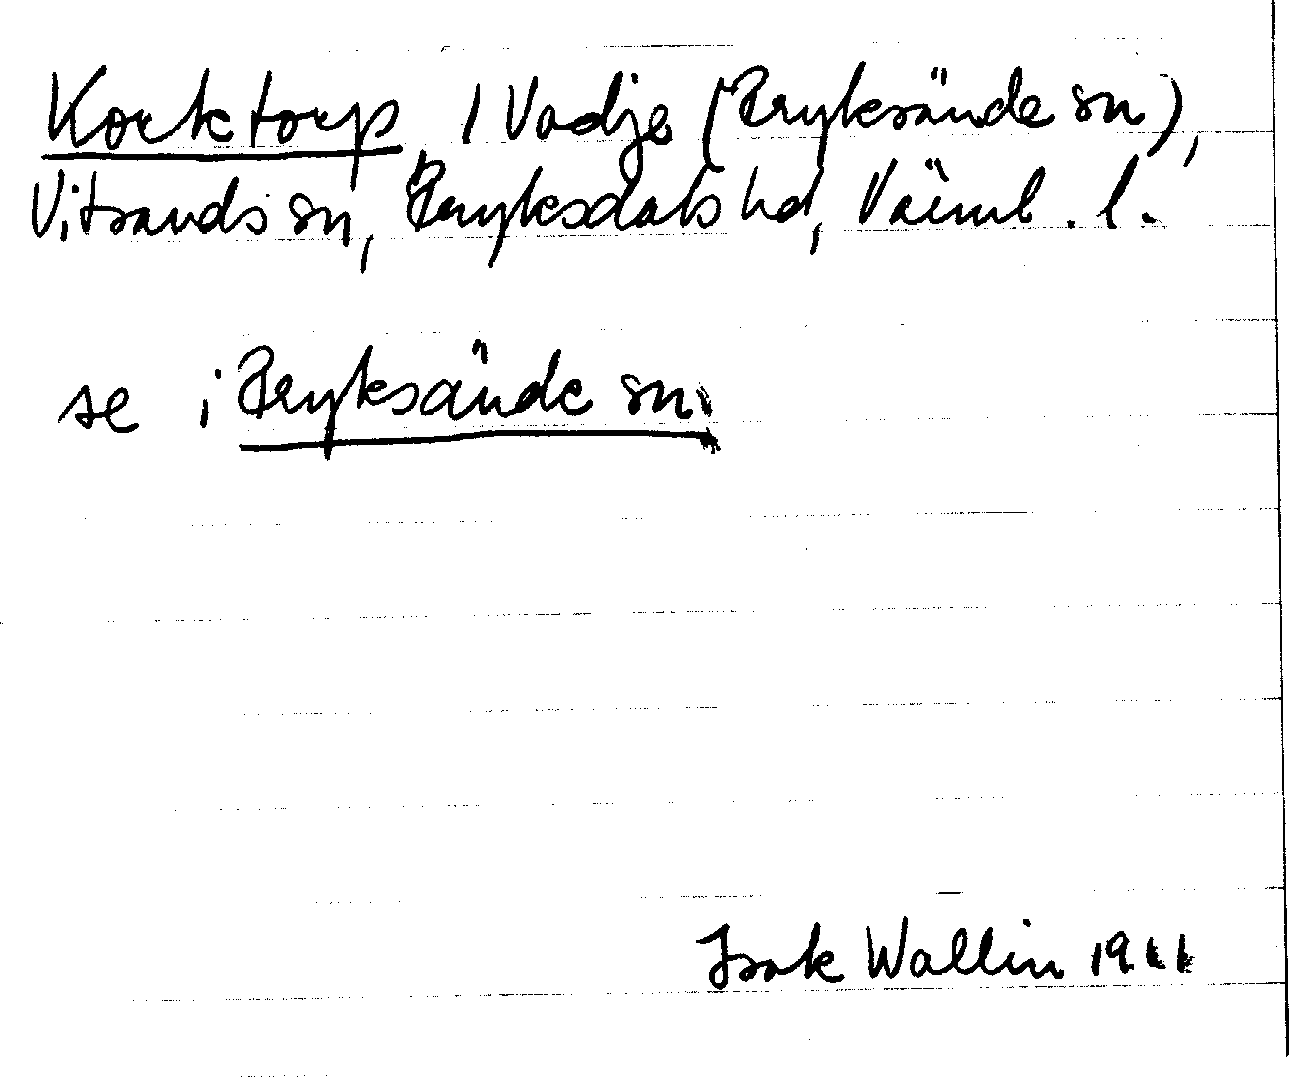 Korktorp, / Vadje (Fryksände sn),
Vitsands sn, Fryksdals hd, Värml. l.
se i Fryksände sn.
Isak Wallin